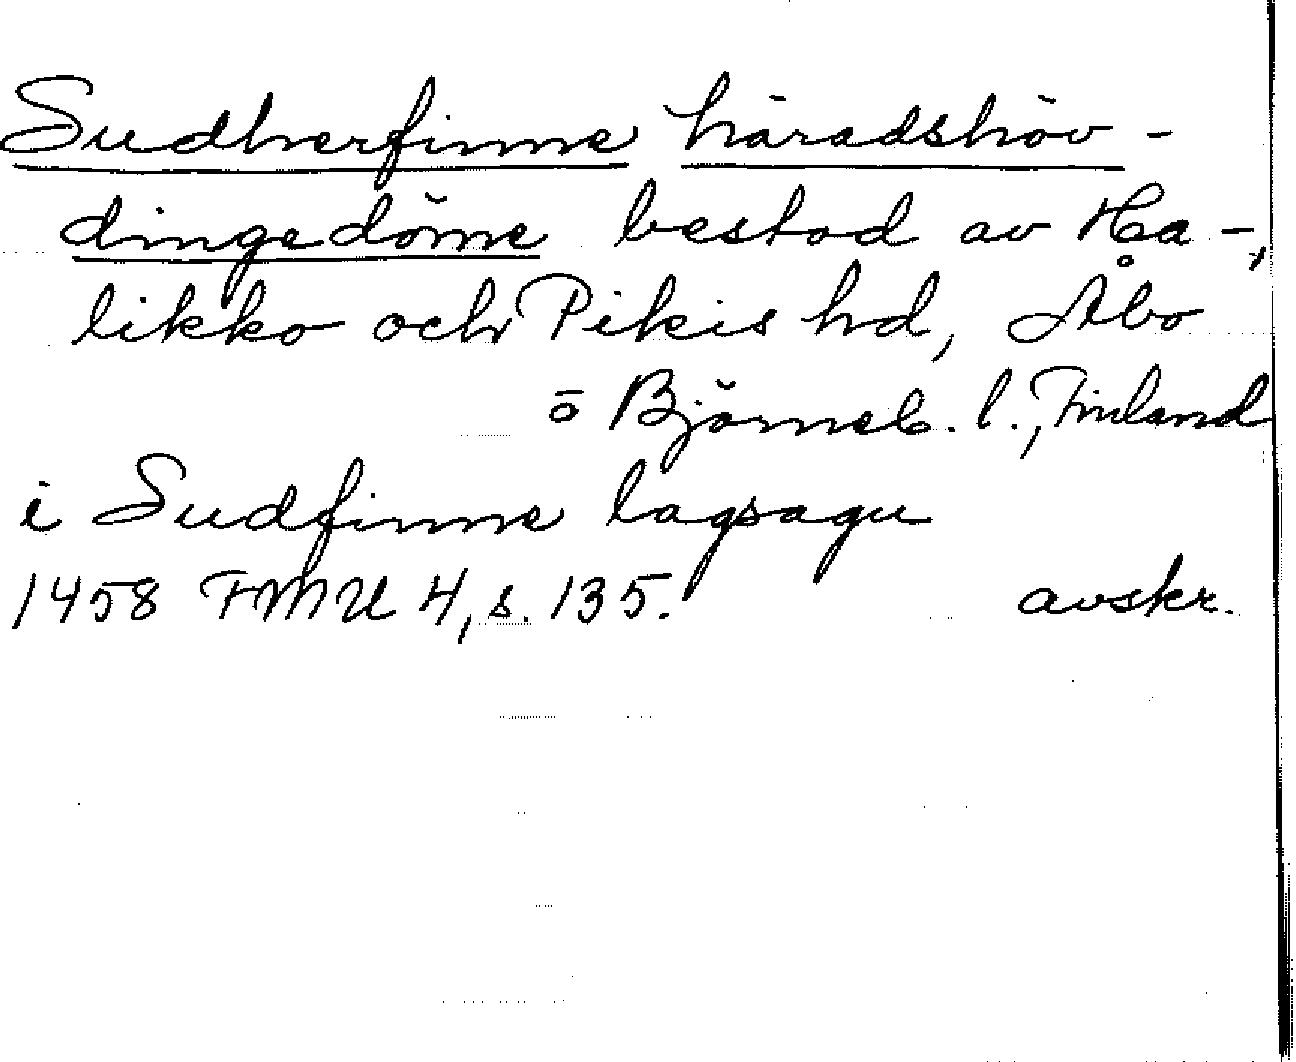 Sudherfinne häradshöv-
dingedöme bestod av Ha-
likko och Pikis hd, Åbo
o Björneb. l., Finland
i Sudfinne lagsagu
1458 FMU 4, s. 135. avskr.